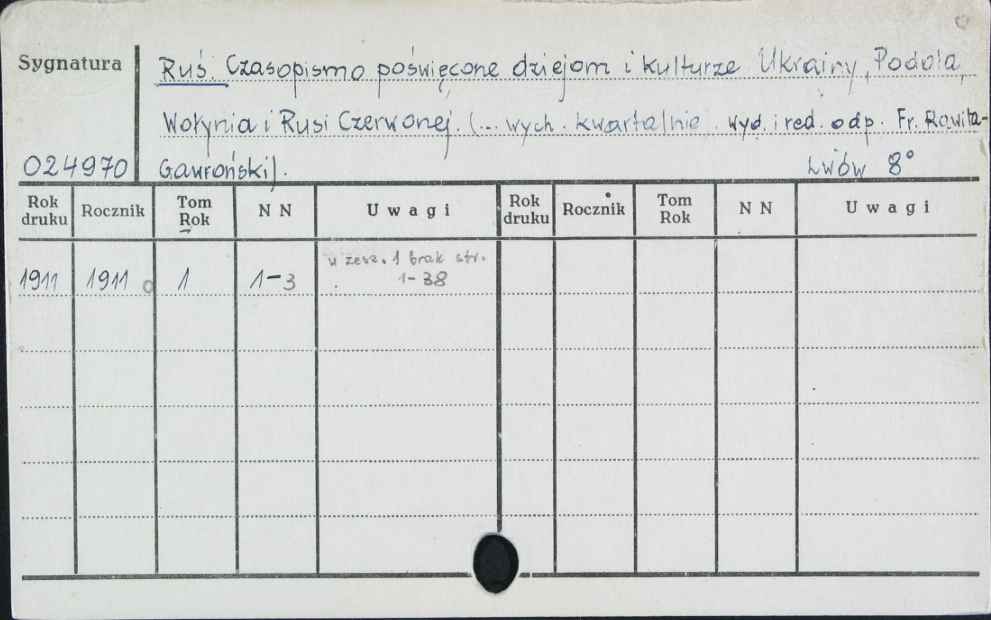 Sygnatura
Ruś. Czasopismo poświęcone dziejom i kulturze Ukrainy, Podola,
Wołynia i Rusi Czerwonej. (... wych. kwartalnie. wyd. i red. odp. Fr. Rawita-
024970 Gawroński). Lwów 8°
Rok druku Rocznik Tom Rok N N Uwagi Rok druku Rocznik Tom Rok N N Uwagi
w zesz. 1 brak str.
1911 1911 1 1-3 1-38